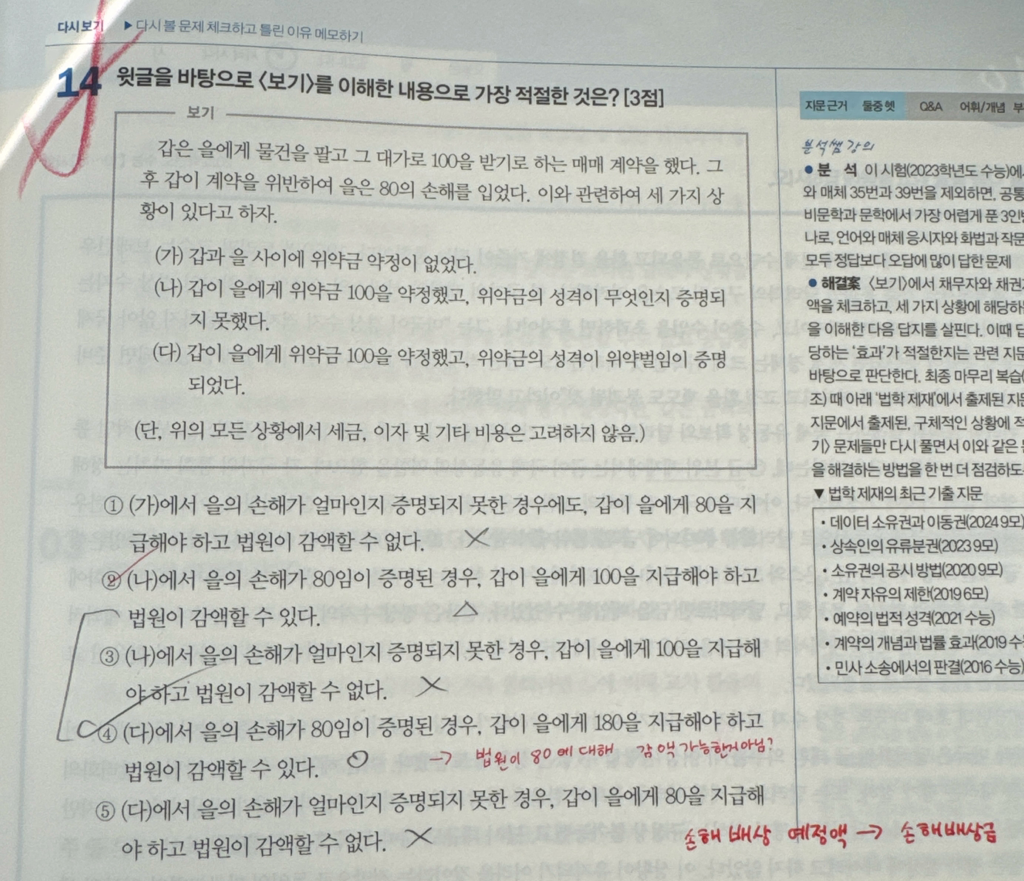 다시보기 ▶ 다시 볼 문제 체크하고 틀린 이유 메모하기
14 윗글을 바탕으로 〈보기〉를 이해한 내용으로 가장 적절한 것은? [3점]
보기
갑은 을에게 물건을 팔고 그 대가로 100을 받기로 하는 매매 계약을 했다. 그
후 갑이 계약을 위반하여 을은 80의 손해를 입었다. 이와 관련하여 세 가지 상
황이 있다고 하자.
(가) 갑과 을 사이에 위약금 약정이 없었다.
(나) 갑이 을에게 위약금 100을 약정했고, 위약금의 성격이 무엇인지 증명되
지 못했다.
(다) 갑이 을에게 위약금 100을 약정했고, 위약금의 성격이 위약벌임이 증명
되었다.
(단, 위의 모든 상황에서 세금, 이자 및 기타 비용은 고려하지 않음.)
① (가)에서 을의 손해가 얼마인지 증명되지 못한 경우에도, 갑이 을에게 80을 지
급해야 하고 법원이 감액할 수 없다.
② (나)에서 을의 손해가 80임이 증명된 경우, 갑이 을에게 100을 지급해야 하고
법원이 감액할 수 있다.
③ (나)에서 을의 손해가 얼마인지 증명되지 못한 경우, 갑이 을에게 100을 지급해
야 하고 법원이 감액할 수 없다.
④ (다)에서 을의 손해가 80임이 증명된 경우, 갑이 을에게 180을 지급해야 하고
법원이 감액할 수 있다. → 법원이 80에 대해 감액 가능한지아님?
⑤ (다)에서 을의 손해가 얼마인지 증명되지 못한 경우, 갑이 을에게 80을 지급해
야 하고 법원이 감액할 수 없다.
손해 배상 예정액 → 손해배상금
지문 근거 둘중헷 Q&A 어휘/개념 부
분석쌤 강의
● 분 석 이 시험(2023학년도 수능)에
와 매체 35번과 39번을 제외하면, 공통
비문학과 문학에서 가장 어렵게 푼 3인
나로, 언어와 매체 응시자와 화법과 작문
모두 정답보다 오답에 많이 답한 문제
● 해결案 〈보기〉에서 채무자와 채권
액을 체크하고, 세 가지 상황에 해당하
을 이해한 다음 답지를 살핀다. 이때 답
당하는 '효과'가 적절한지는 관련 지문
바탕으로 판단한다. 최종 마무리 복습
조) 때 아래 '법학 제재'에서 출제된 지문
지문에서 출제된, 구체적인 상황에 적
기) 문제들만 다시 풀면서 이와 같은
을 해결하는 방법을 한 번 더 점검하도
▼ 법학 제재의 최근 기출 지문
• 데이터 소유권과 이동권(2024 9모)
• 상속인의 유류분권(2023 9모)
• 소유권의 공시 방법(2020 9모)
• 계약 자유의 제한(2019 6모)
• 예약의 법적 성격(2021 수능)
• 계약의 개념과 법률 효과(2019 수
• 민사 소송에서의 판결(2016 수능)